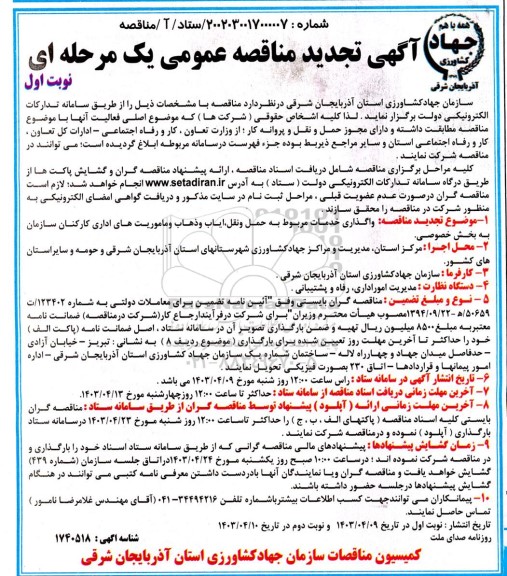 شماره : ۲۰۰۲۰۳۰۰۱۷۰۰۰۰۰۷/ستاد/ آ /مناقصه
همه با هم
جهاد
کشاورزی
آذربایجان شرقی
آگهی تجدید مناقصه عمومی یک مرحله ای
نوبت اول
سازمان جهادکشاورزی استان آذربایجان شرقی درنظردارد مناقصه با مشخصات ذیل را از طریق سامانه تدارکات
الکترونیکی دولت برگزار نماید . لذا کلیه اشخاص حقوقی ( شرکت ها ) که موضوع اصلی فعالیت آنها با موضوع
مناقصه مطابقت داشته و دارای مجوز حمل و نقل و پروانه کار ؛ از وزارت تعاون ، کار و رفاه اجتماعی – ادارات کل تعاون ،
کار و رفاه اجتماعی استان و سایر مراجع ذیربط بوده جزء فهرست درسامانه مربوطه ابلاغ گردیده است؛ می توانند در
مناقصه شرکت نمایند .
کلیه مراحل برگزاری مناقصه شامل دریافت اسناد مناقصه ، ارائه پیشنهاد مناقصه گران و گشایش پاکت ها از
طریق درگاه سامانه تدارکات الکترونیکی دولت ( ستاد ) به آدرس www.setadiran.ir انجام خواهد شد؛ لازم است
مناقصه گران درصورت عدم عضویت قبلی ، مراحل ثبت نام در سایت مذکور و دریافت گواهی امضای الکترونیکی به
منظور شرکت در مناقصه را محقق سازند
۱–موضوع تجدید مناقصه: واگذاری خدمات مربوط به حمل ونقل،ایاب وذهاب وماموریت های اداری کارکنان سازمان
به بخش خصوصی.
۲– محل اجرا : مرکز استان، مدیریت و مراکز جهادکشاورزی شهرستانهای استان آذربایجان شرقی و حومه و سایراستان
های کشور.
۳– کارفرما : سازمان جهادکشاورزی استان آذربایجان شرقی .
۴– دستگاه نظارت : مدیریت اموراداری، رفاه و پشتیبانی .
۵ – نوع و مبلغ تضمین : مناقصه گران بایستی وفق "آئین نامه تضمین برای معاملات دولتی به شماره ۱۲۳۴۰۲/ت
۵۰۶۵۹/ه –۱۳۹۴/۰۹/۲۲مصوب هیأت محترم وزیران"برای شرکت درفرآیندارجاع کار(شرکت درمناقصه) ضمانت نامه
معتبربه مبلغ۸۵۰۰ میلیون ریـال تهیه و ضمن بارگذاری تصویر آن در سامانه ستاد ، اصل ضمانت نامه (پاکت الف )
خود را حداکثر تا آخرین مهلت روز تعیین شده برای بارگذاری (موضوع ردیف ۸ ) به نشانی : تبریز – خیابان آزادی
– حدفاصل میدان جهاد و چهارراه لاله – ساختمان شماره یـک سازمان جهاد کشاورزی استان آذربایجان شرقی – اداره
امور پیمانها و قراردادها – اتاق ۲۳۰ بصورت فیزیکی تحویل نمایند .
۶– تاریخ انتشار آگهی در سامانه ستاد : راس ساعت ۱۲:۰۰ روز شنبه مورخ ۱۴۰۳/۰۴/۰۹ می باشد .
۷– آخرین مهلت زمانی دریافت اسناد مناقصه از سامانه ستاد: حداکثر تا ساعت ۱۲:۰۰ روزچهارشنبه مورخ ۱۴۰۳/۰۴/۱۳.
۸– آخرین مهلت زمانی ارائه ( آپلود ) پیشنهاد توسط مناقصه گران از طریق سامانه ستاد : مناقصه گران
بایستی کلیه اسناد مناقصه ( پاکتهای الف ، ب ، ج ) را حداکثر تاساعت ۱۲:۰۰ روز شنبه مورخ ۱۴۰۳/۰۴/۲۳ درسامانه ستاد
بارگذاری ( آپلود ) نموده و درمناقصه شرکت نمایند .
۹– زمان گشایش پیشنهادها : پیشنهادهای مالی مناقصه گرانی که از طریق سامانه ستاد اسناد خود را بارگذاری و
در مناقصه شرکت نموده اند ؛ درساعت ۱۰:۰۰ صبح روز یکشنبه مورخ ۱۴۰۳/۰۴/۲۴دراتاق جلسه سازمان (شماره ۴۳۹)
گشایش خواهد یافت و مناقصه گران ویا نمایندگان آنها بادردست داشتن معرفی نامه کتبی می توانند در هنگام
گشایش پیشنهادها درجلسه حضور داشته باشند.
۱۰– پیمانکاران می توانندجهت کسب اطلاعات بیشترباشماره تلفن ۳۴۴۹۴۲۱۶-۰۴۱ (آقای مهندس غلامرضا نامور )
تماس حاصل نمایند.
تاریخ انتشار : نوبت اول در تاریخ ۱۴۰۳/۰۴/۰۹ و نوبت دوم در تاریخ ۱۴۰۳/۰۴/۱۰
روزنامه صدای ملت
شناسه آگهی : ۱۷۴۰۵۱۸
کمیسیون مناقصات سازمان جهادکشاورزی استان آذربایجان شرقی